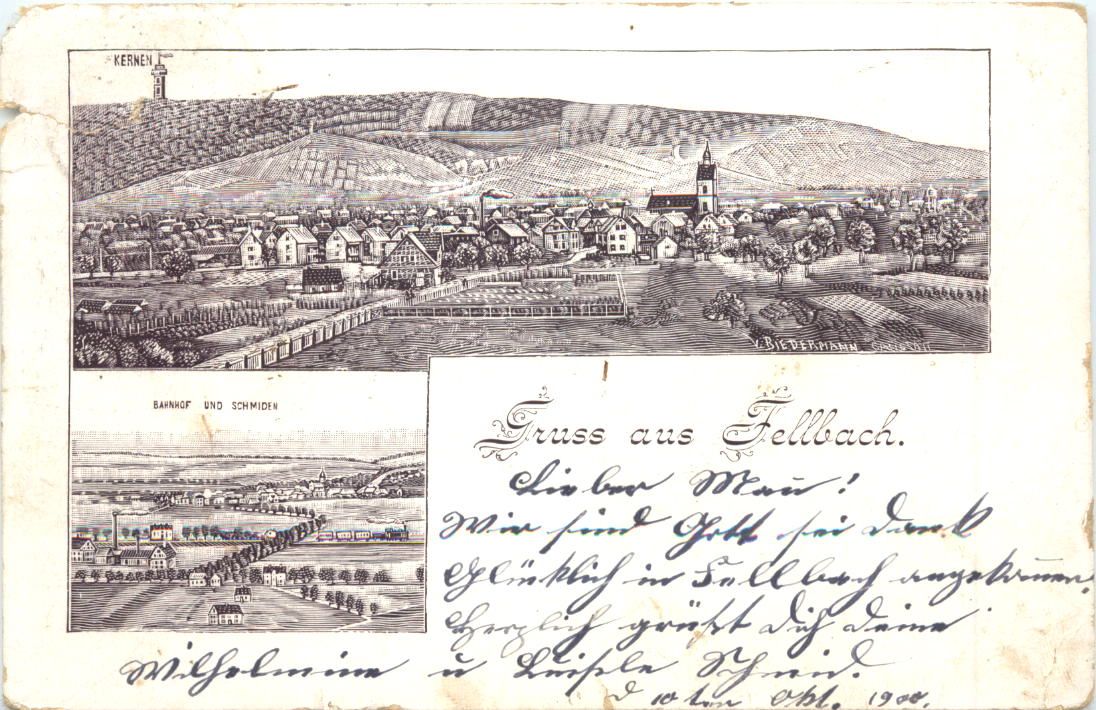 KERNEN
V. BIEDERMANN
BAHNHOF UND SCHMIDEN
Gruss aus Fellbach.
Lieber Mau!
Wir sind Gott sei dank
Glücklich in Fellbach angekommen.
Herzlich grüßt Dich deine
Wilhelmine u Luisele Schmid.
d 10ten Okt. 1900.